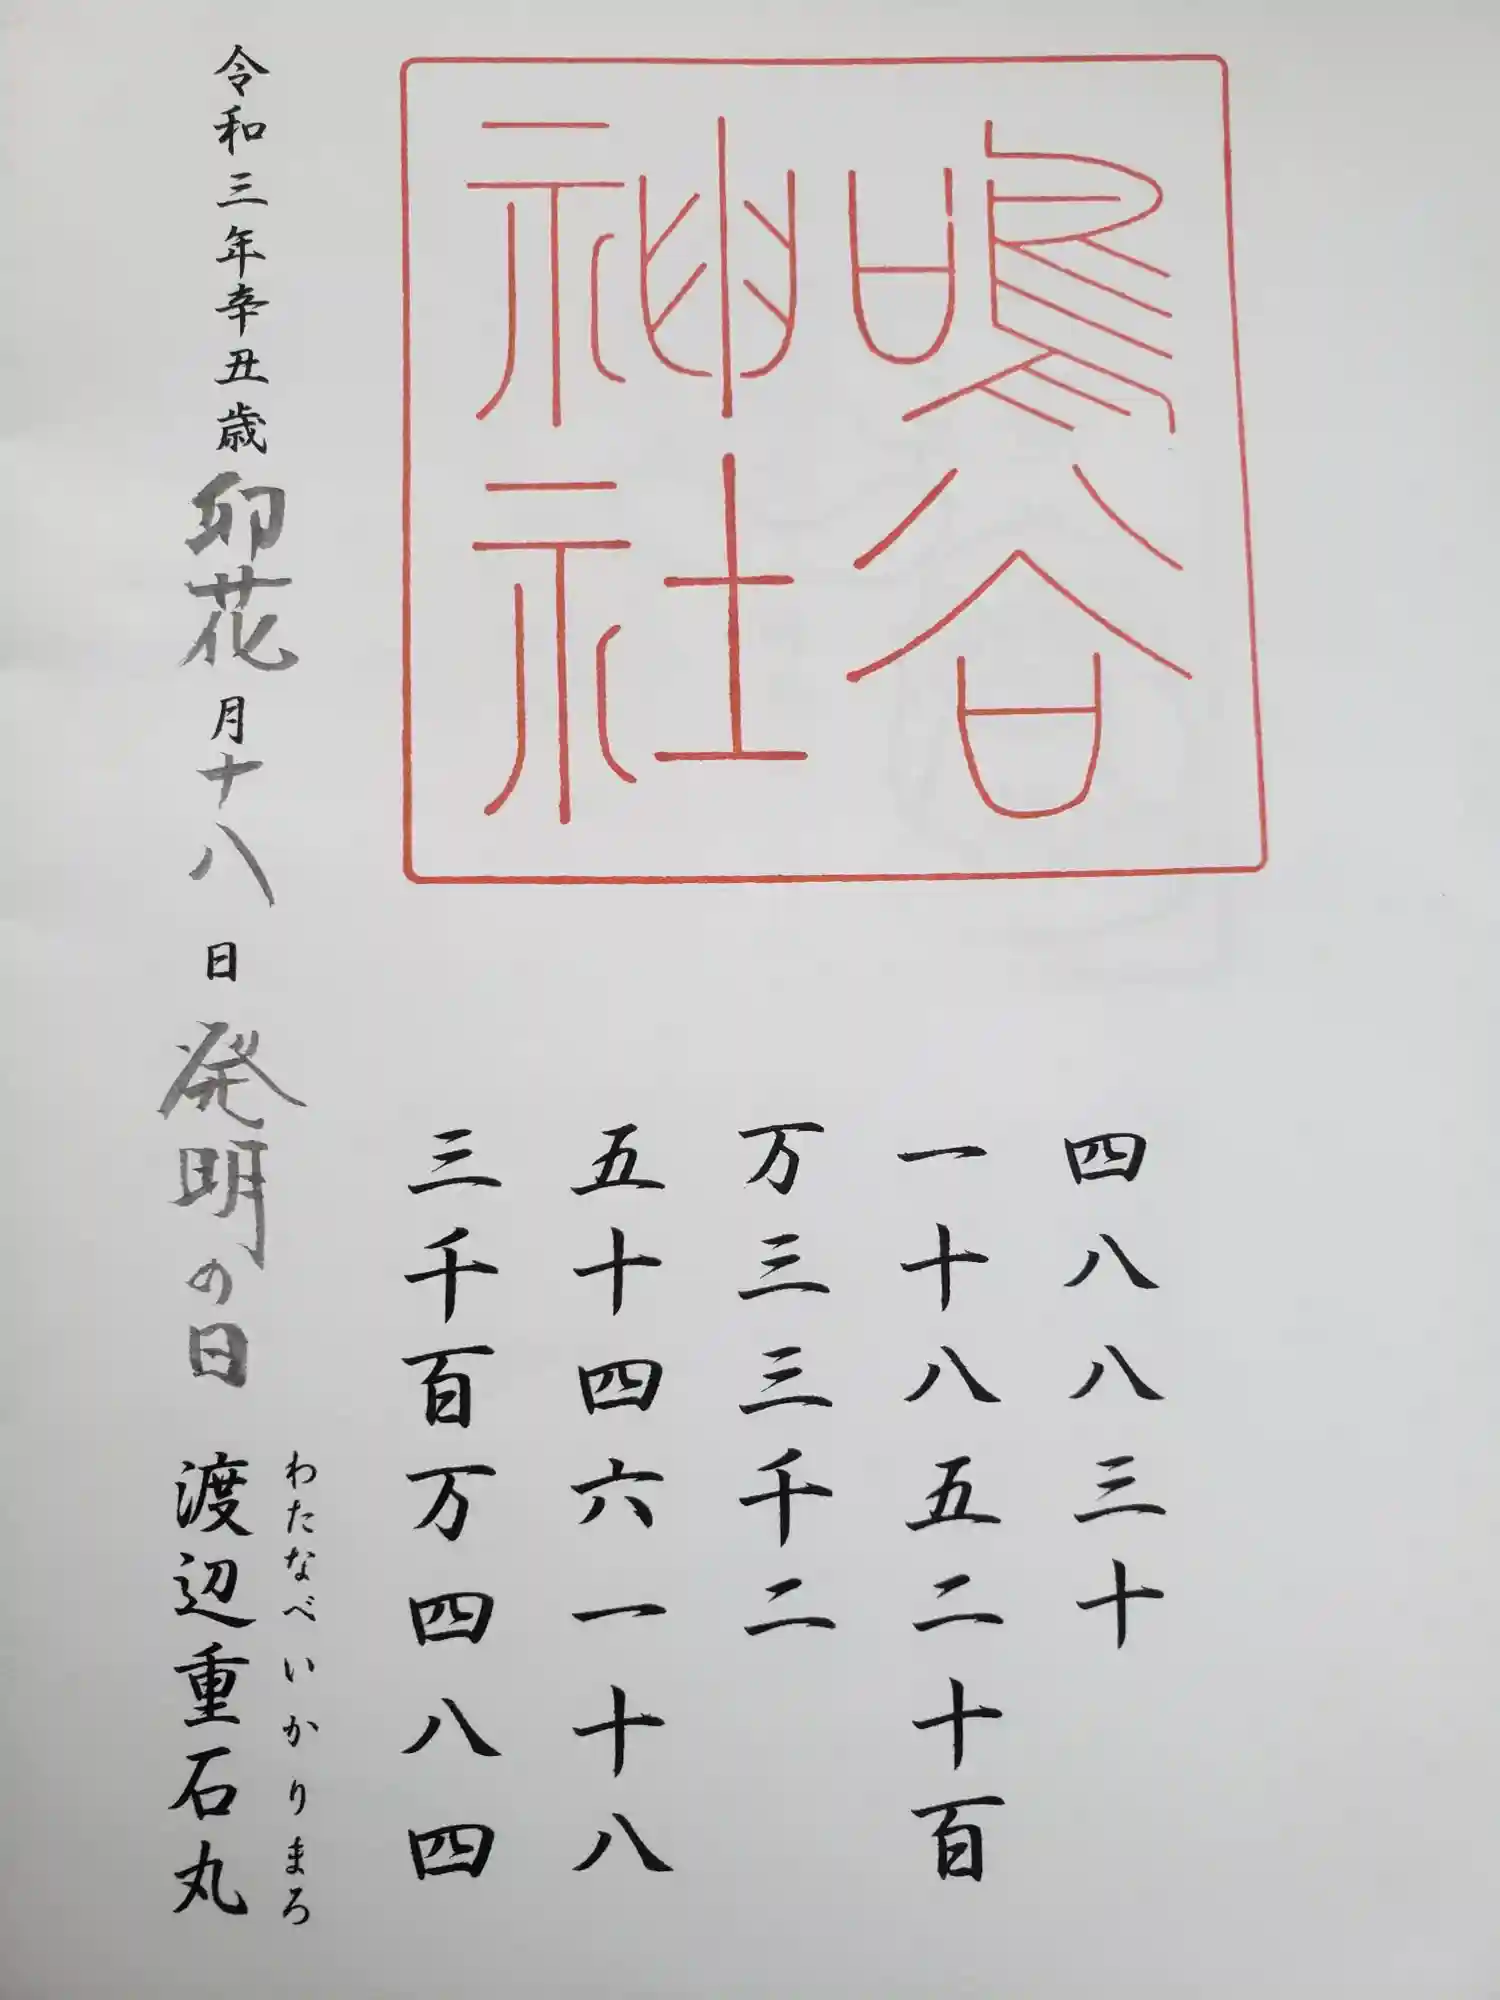 鳴谷
神社
四八八三十
一十八五二十百
万三三千二
五十四六一十八
三千百万四八四
令和三年辛丑歳卯花月十八日発明の日
わたなべいかりまろ
渡辺重石丸